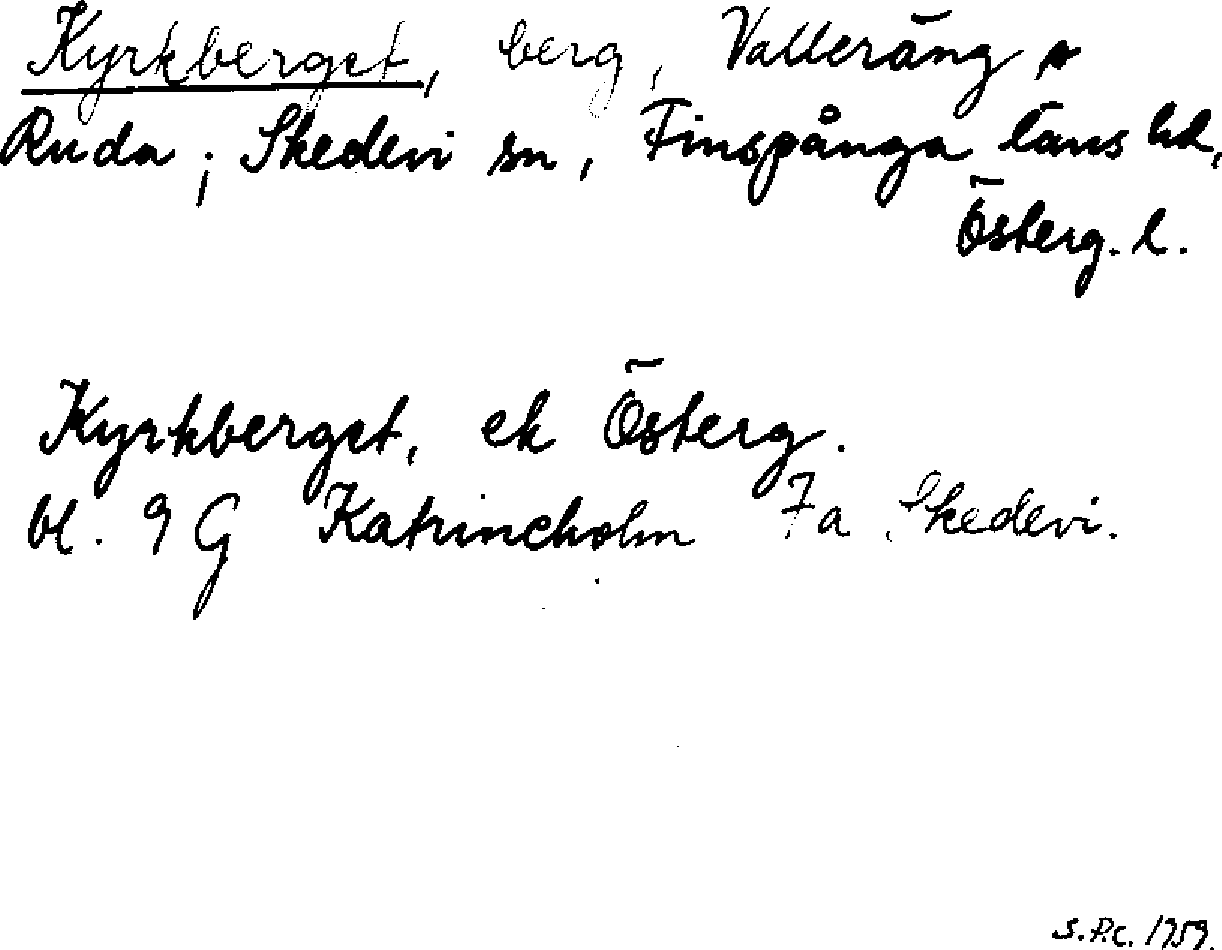 Kyrkberget, berg, Valleräng o
Ruda; Skedevi sn, Finspånga läns hd,
Österg. l.
Kyrkberget, ek Österg.
bl. 9 G Katrineholm Fa Skedevi.
S.P.C. 1959.